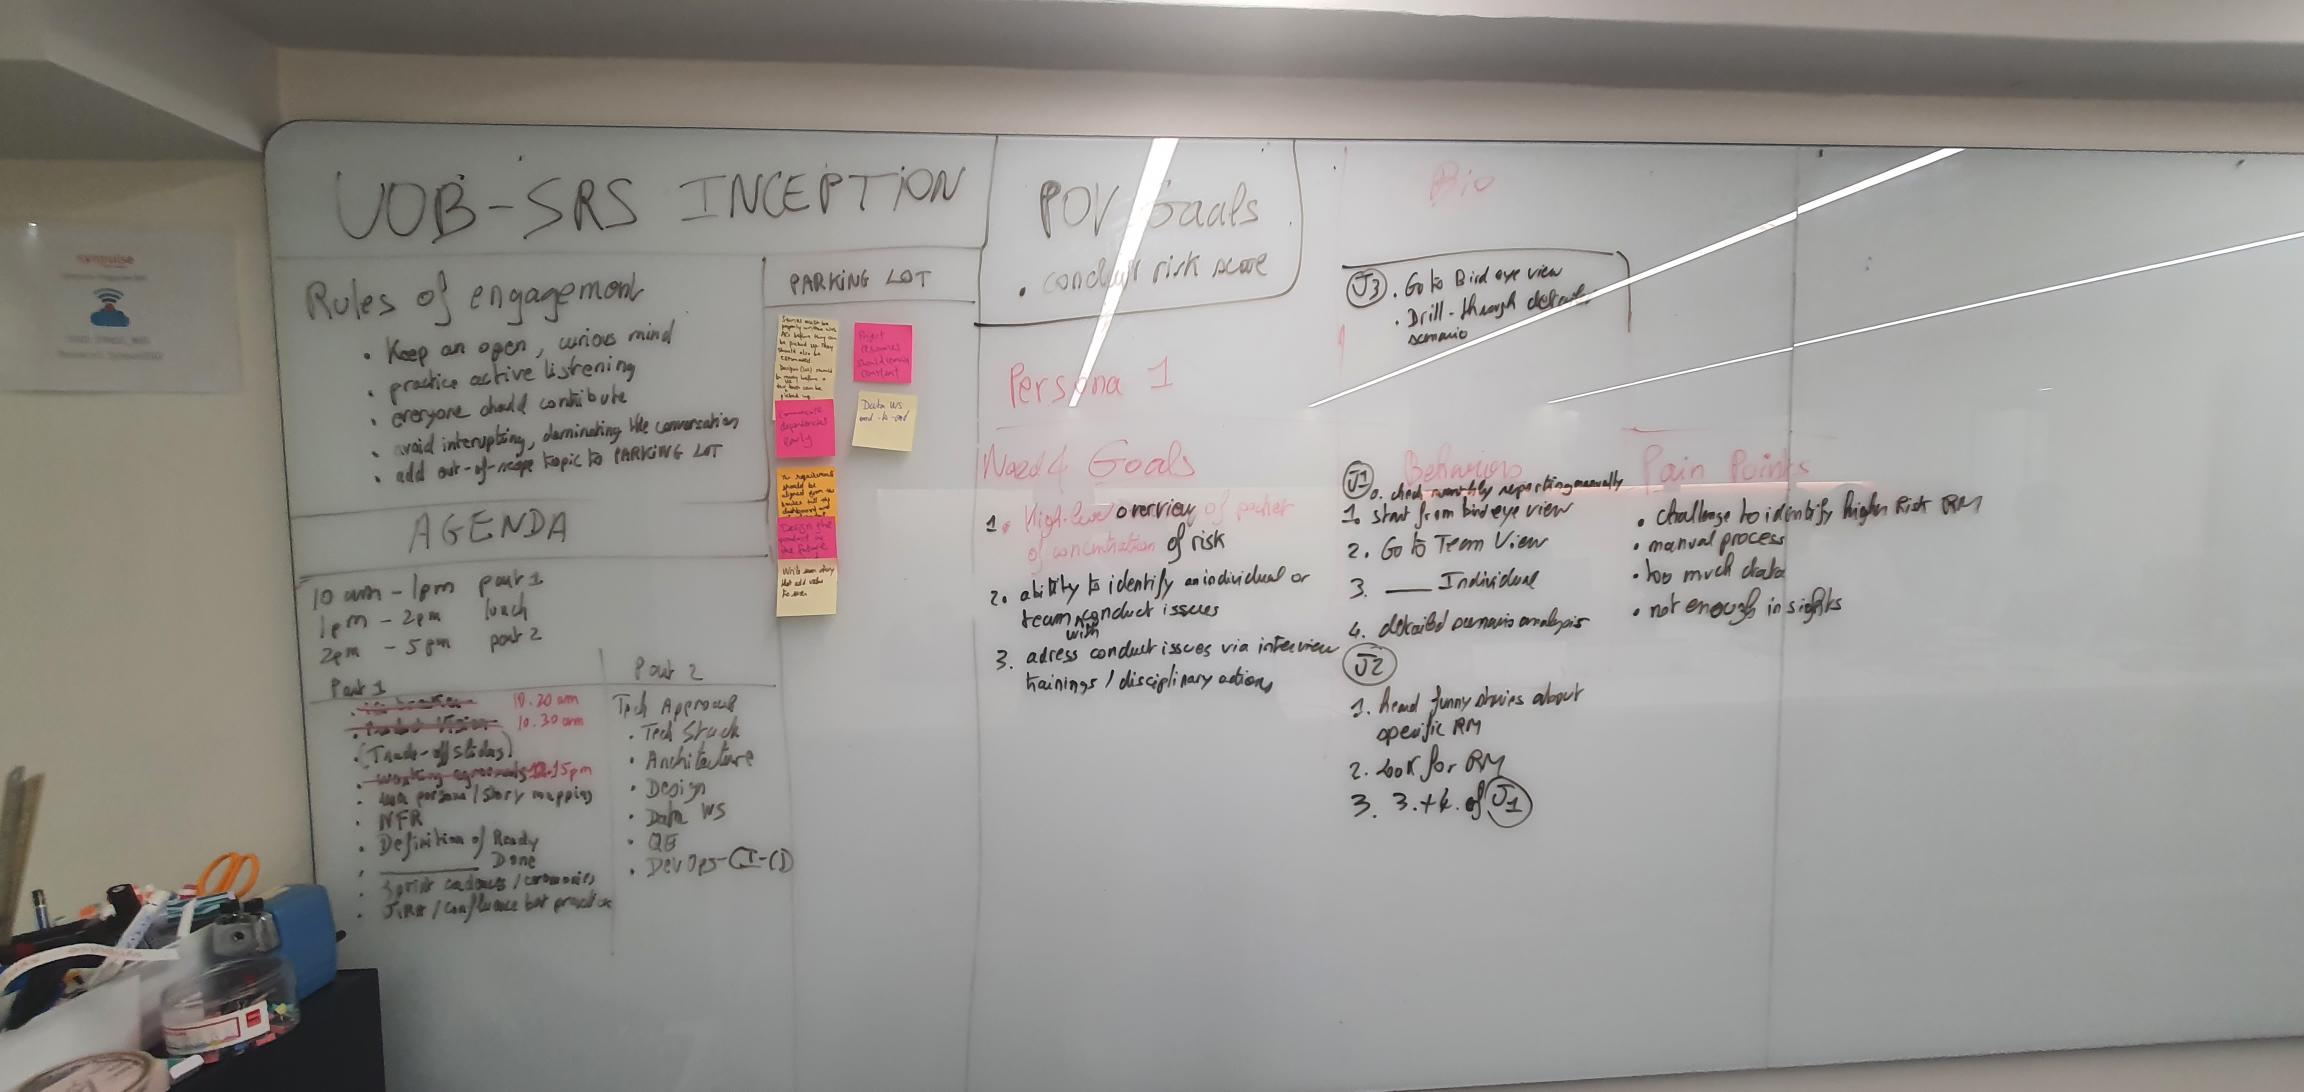 UOB-SRS INCEPTION
Rules of engagement
• Keep an open, curious mind
• practice active listening
• everyone should contribute
• avoid interupting, dominating the conversation
• add out-of-scope topic to PARKING LOT
AGENDA
10 am - 1pm part 1
1pm - 2pm lunch
2pm - 5pm part 2
Part 1
10.20 am
• Product Vision 10.30 am
• (Trade-off sliders)
• working agreements 12.15pm
• persona / story mapping
• NFR
• Definition of Ready
• ____ Done
• Sprint cadences / ceremonies
• JIRA / Confluence best practice
Part 2
Tech Approach
• Tech Stack
• Architecture
• Design
• Data WS
• QE
• DevOps-CI-CD
PARKING LOT
Stories must be
properly written with
ACs before they can
be picked up. They
should also be
estimated.
Project
resources
should remain
constant
Communicate
dependencies
early
Data WS
end-to-end
The requirements
should be
aligned from the
dashboard and
Design the
product in
the future
Write user story
that add value
to user
POV Goals
• conduct risk score
Persona 1
Need & Goals
1. High-level overview of pocket
of concentration of risk
2. ability to identify an individual or
team with conduct issues
3. adress conduct issues via interview
trainings / disciplinary actions
Bio
J3 • Go to Bird eye view
• Drill-through detailed
scenario
Behaviors
J1 0. check monthly reporting manually
1. start from bird eye view
2. Go to Team View
3. ____ Individual
4. detailed scenario analysis
J2
1. heard funny stories about
specific RM
2. Look for RM
3. 3.+4. of J1
Pain Points
• challenge to identify higher Risk RM
• manual process
• too much data
• not enough insights